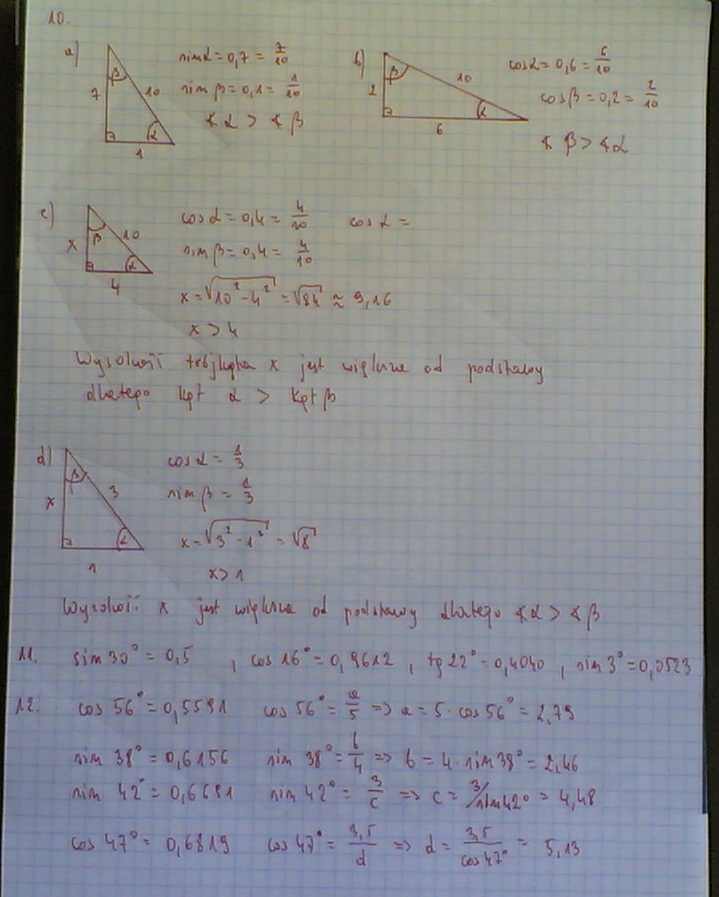 10.
a) 7 β 10 α 1
sin α = 0,7 = 7/10
sin β = 0,1 = 1/10
∢ α > ∢ β
b) 2 β 10 α 6
cos α = 0,6 = 6/10
cos β = 0,2 = 2/10
∢ β > ∢ α
c) x β 10 α 4
cos α = 0,4 = 4/10 cos α =
sin β = 0,4 = 4/10
x = √(10² - 4²) = √84 ≈ 9,16
x > 4
Wysokość trójkąta x jest większa od podstawy
dlatego kąt α > kąt β
d) x β 3 α 1
cos α = 1/3
sin β = 1/3
x = √(3² - 1²) = √8
x > 1
Wysokość x jest większa od podstawy dlatego ∢ α > ∢ β
11. sin 30° = 0,5 , cos 16° = 0,9612 , tg 22° = 0,4040 , sin 3° = 0,0523
12. cos 56° = 0,5591 cos 56° = a/5 => a = 5 · cos 56° = 2,79
sin 38° = 0,6156 sin 38° = b/4 => b = 4 · sin 38° = 2,46
sin 42° = 0,6691 sin 42° = 3/c => c = 3/sin 42° = 4,48
cos 47° = 0,6819 cos 47° = 3,5/d => d = 3,5/cos 47° = 5,13